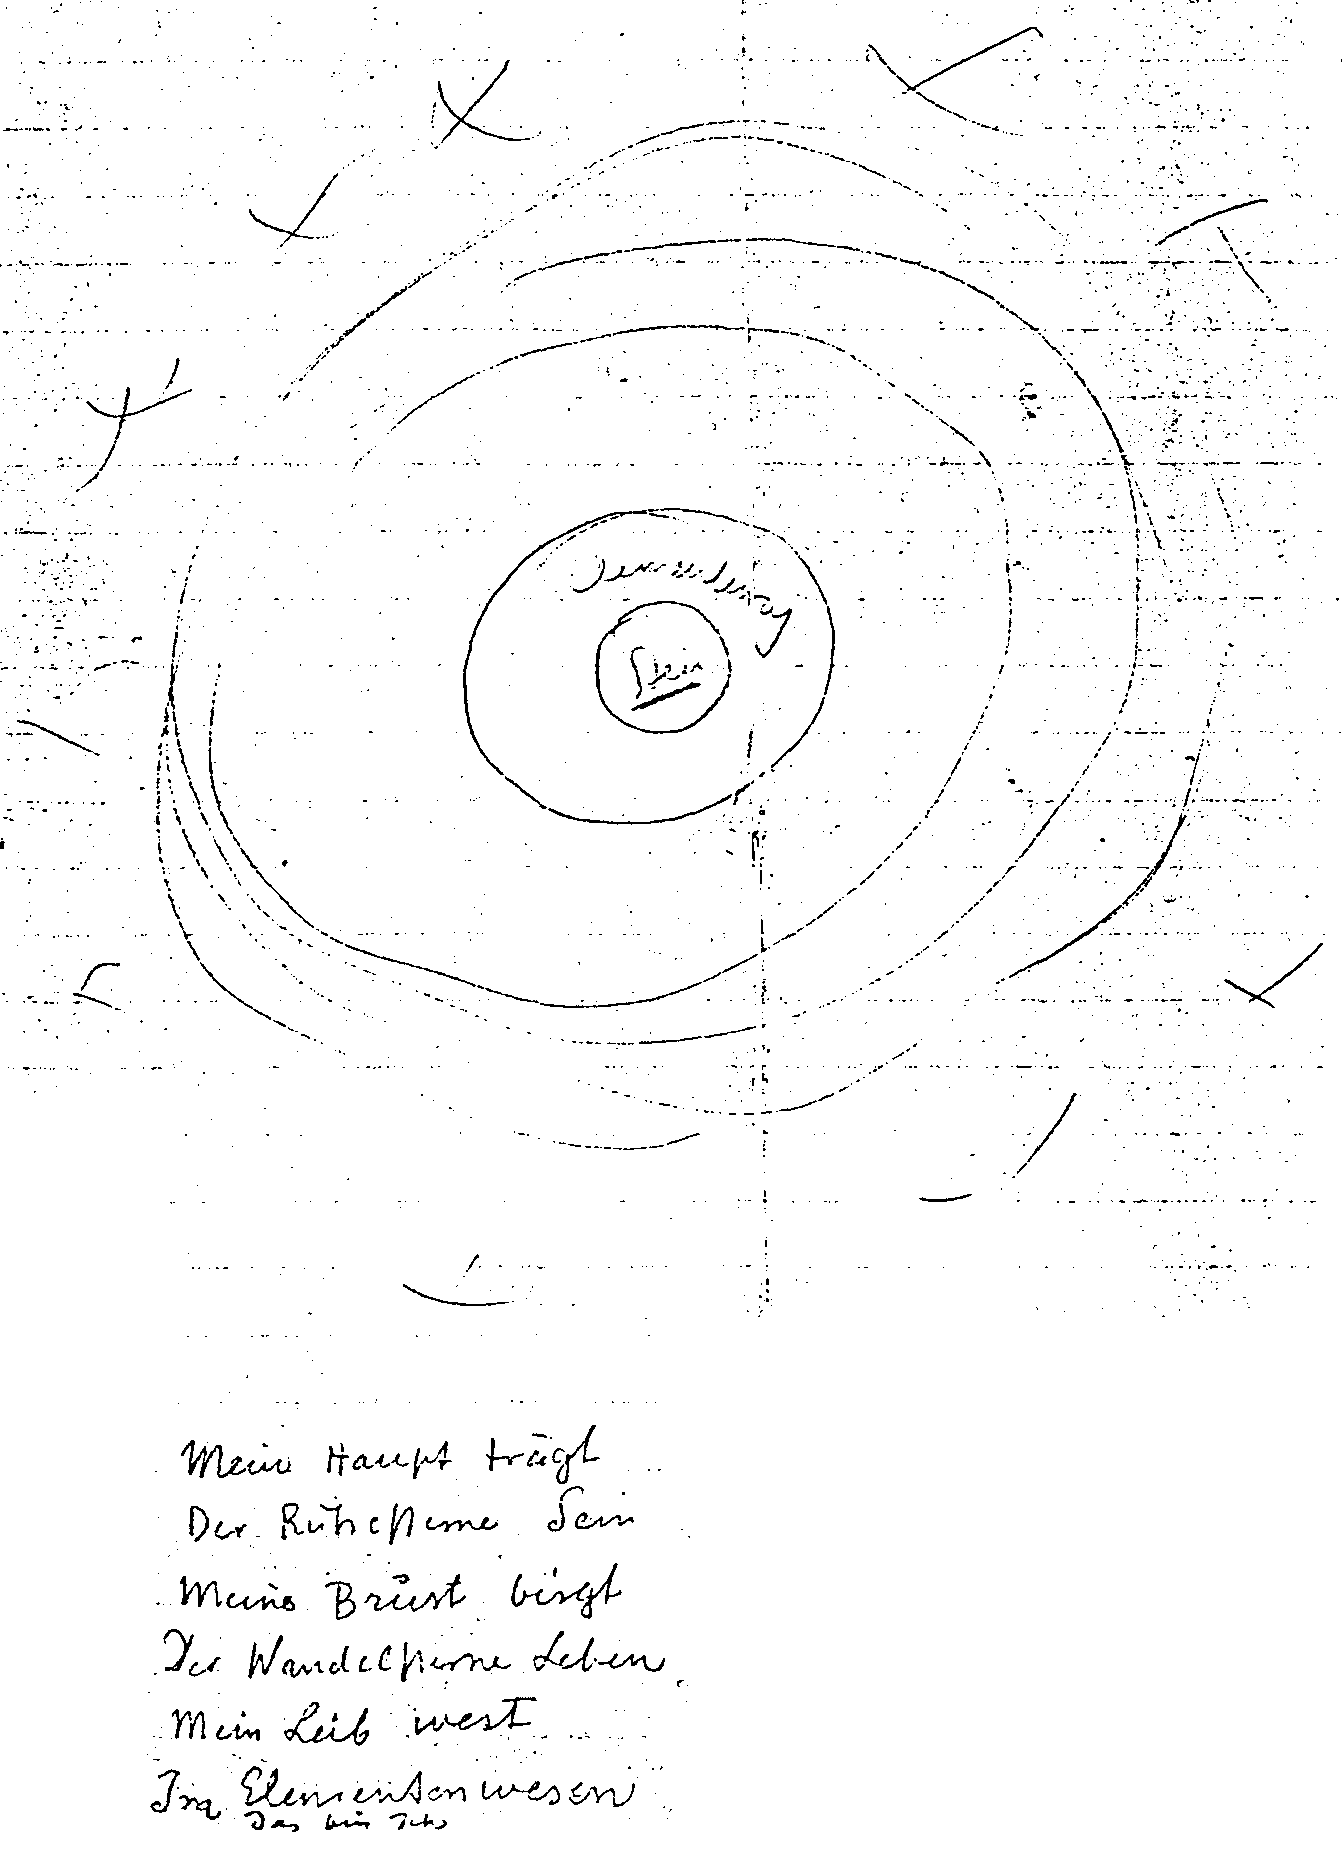 Stein
Mein Haupt trägt
Der Ruhesterne Sein
Meine Brust birgt
Der Wandelsterne Leben
Mein Leib west
Im Elementenwesen
Das bin Ich